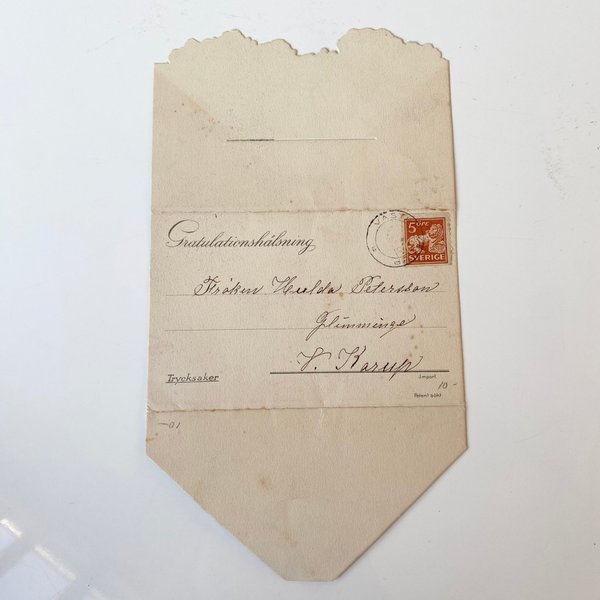 Gratulationshälsning
VÄST
5 ÖRE
SVERIGE
Fröken Hulda Petersson
Glimminge
V. Karup
Trycksaker
Import
10-
Patent sökt
10-